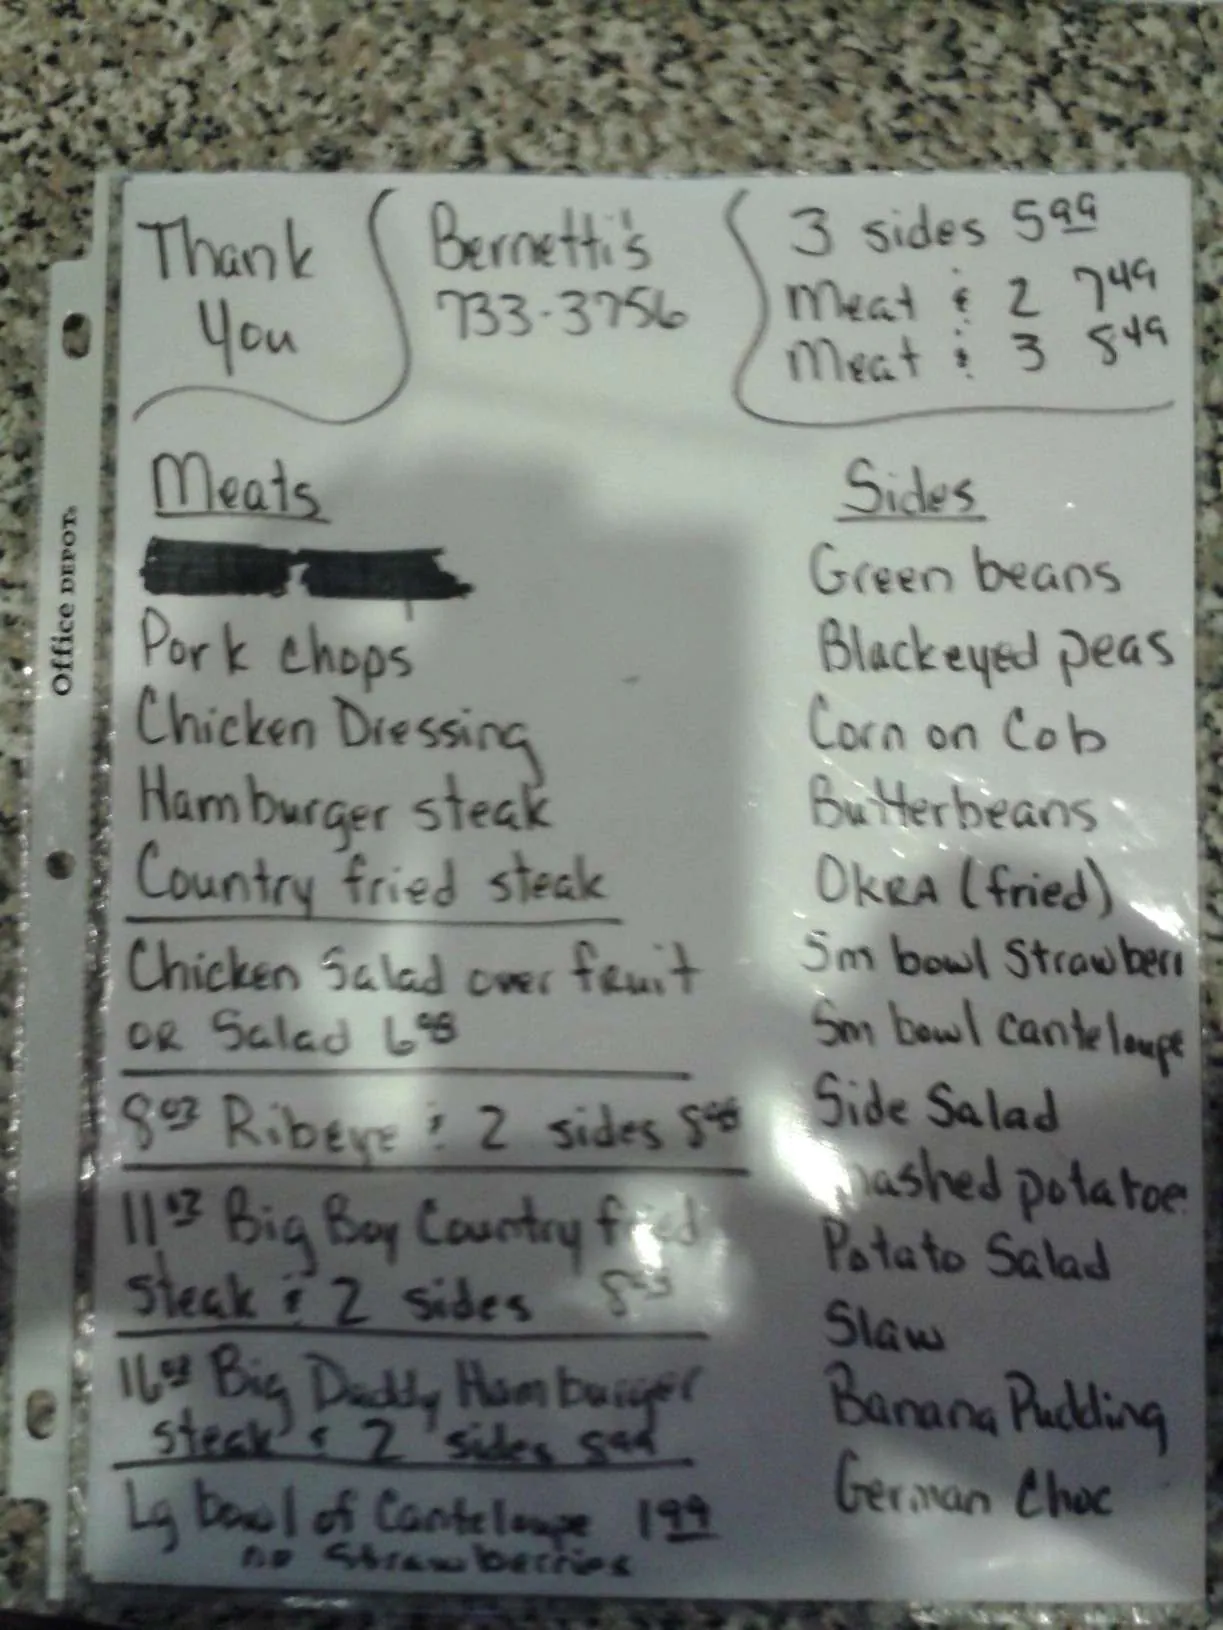 Thank
You
Bernetti's
733-3756
3 sides 5.99
Meat & 2 7.49
Meat & 3 8.49
Meats
Pork chops
Chicken Dressing
Hamburger steak
Country fried steak
Chicken Salad over fruit
OR Salad 6.98
8oz Ribeye & 2 sides
11oz Big Boy Country fried
steak & 2 sides
16oz Big Daddy Hamburger
steak & 2 sides 8.99
Lg bowl of Canteloupe 1.99
no strawberries
Sides
Green beans
Blackeyed peas
Corn on Cob
Butterbeans
OKRA (fried)
Sm bowl Strawberr
Sm bowl canteloupe
Side Salad
mashed potatoe
Potato Salad
Slaw
Banana Pudding
German Choc
Office DEPOT